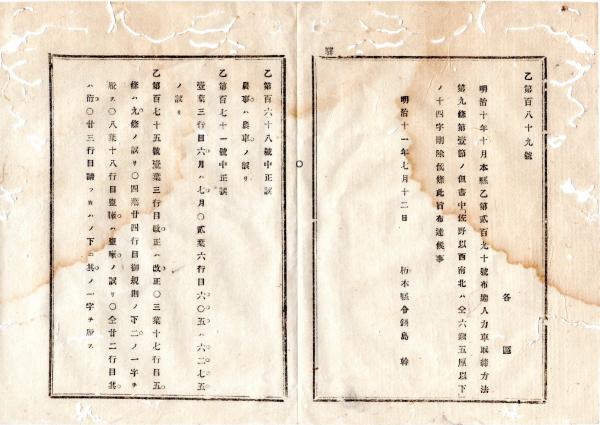 乙第百八十九號
各區
明治十年十月本縣乙第貳百九十號布達人力車取締方法
第九條第壹節ノ但書中「佐野以西南北ハ全六錢五厘以下」
ノ十四字削除候條此旨布達候事
明治十一年七月十二日　栃木縣令鍋島　幹
乙第百六十八號中正誤
農事ハ農車ノ誤リ
乙第百七十一號中正誤
壹葉三行目六月ハ七月〇貳葉六行目六〇五ハ六二七五
ノ誤リ
乙第百七十五號壹葉三行目改正ハ改正〇三葉十七行目五
條ハ九條ノ誤リ〇四葉廿四行目御規則ノ下ニノ一字ヲ
脱ス〇八葉十八行目
ノ誤リ〇仝廿二行目其
ハ衍〇廿三行目
ノ下ニ其ノ一字ヲ脱ス